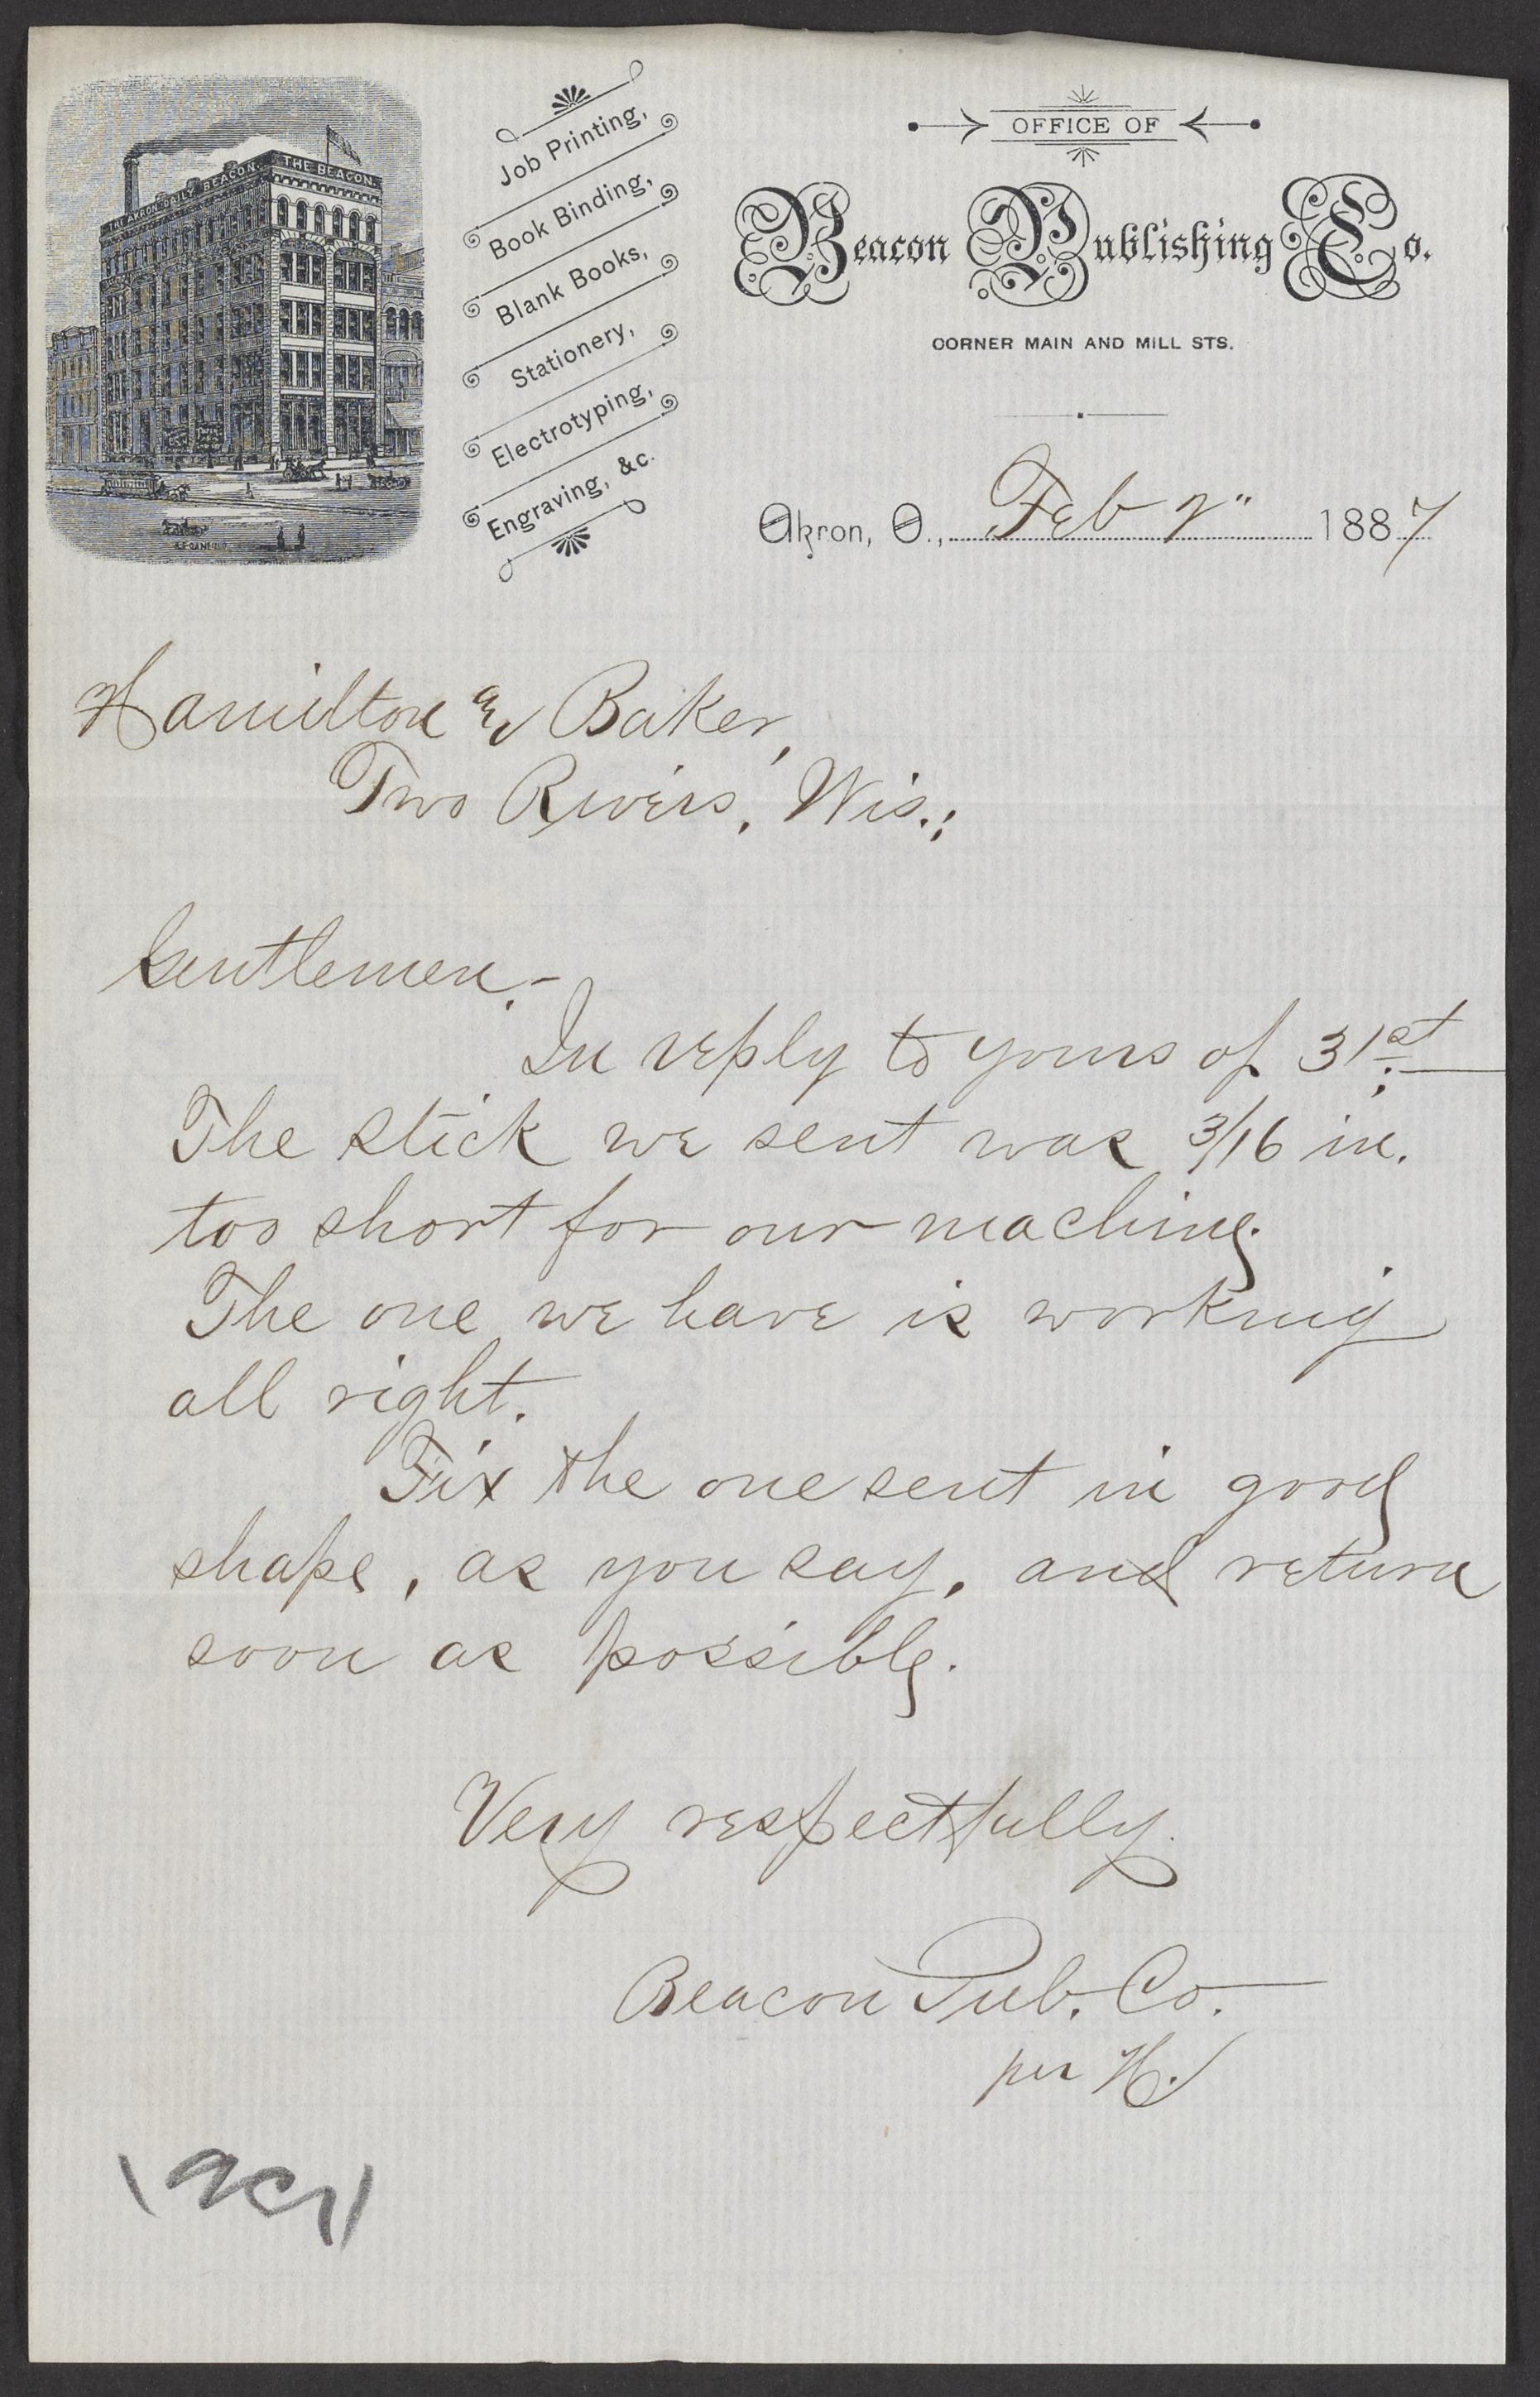 THE AKRON DAILY BEACON.
THE BEACON.
Job Printing,
Book Binding,
Blank Books,
Stationery,
Electrotyping,
Engraving, &c.
OFFICE OF
Beacon Publishing Co.
CORNER MAIN AND MILL STS.
Akron, O., Feb 2" 1887
Hamilton & Baker,
Two Rivers, Wis.:
Gentlemen.-
In reply to yours of 31st
The stick we sent was 3/16 in.
too short for our machine.
The one we have is working
all right.
Fix the one sent in good
shape, as you say, and return
soon as possible.
Very respectfully.
Beacon Pub. Co.
per H.